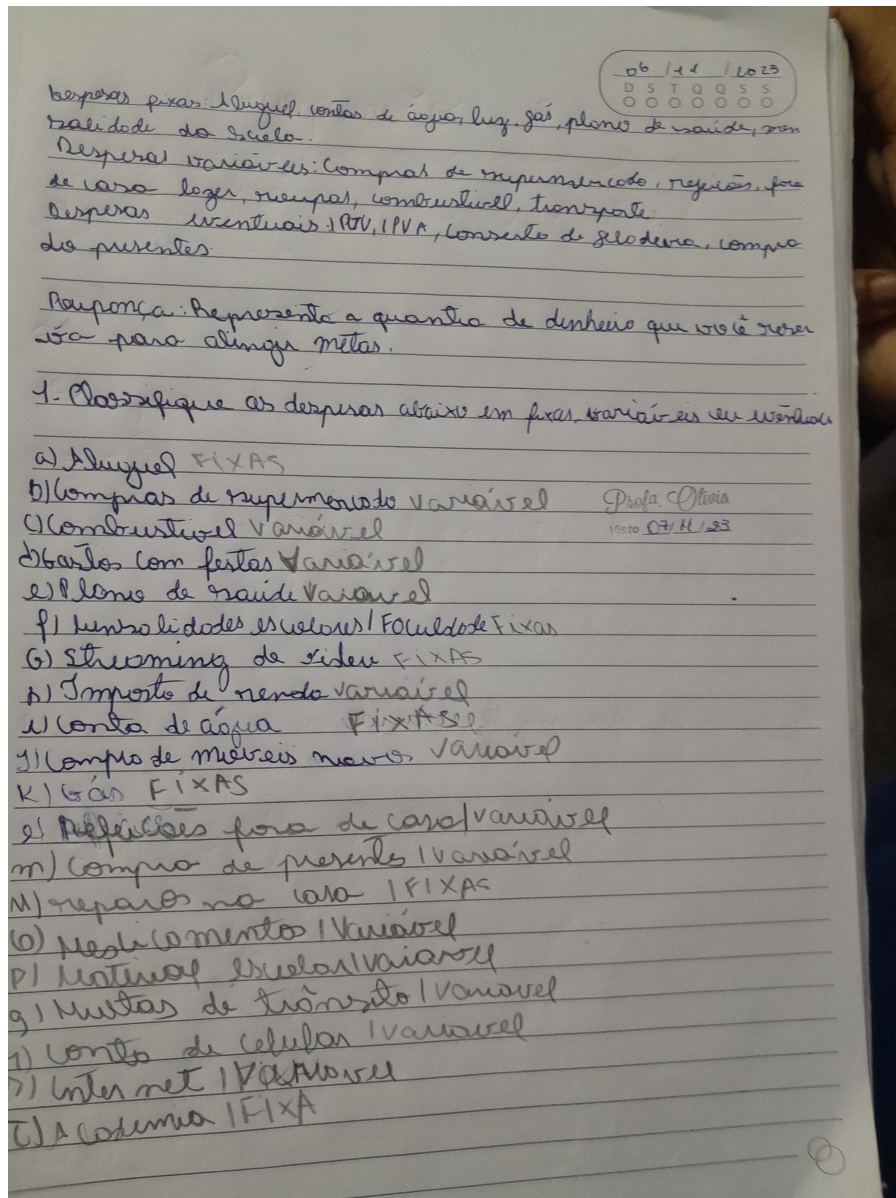 06 / 11 / 2023
D S T Q Q S S
Despesas fixas: Aluguel, contas de água, luz, gás, plano de saúde, men
salidade da escola.
Despesas variáveis: Compras de supermercado, refeições, fora
de casa lazer, roupas, combustível, transporte
Despesas eventuais: IPTU, IPVA, conserto de geladeira, compra
de presentes
Poupança: Representa a quantia de dinheiro que você reser
va para atingir metas.
1- Classifique as despesas abaixo em fixas, variáveis ou eventuais
a) Aluguel FIXAS
b) Compras de supermercado variável
Profa. Olivia
c) Combustível variável
Visto 07/11/23
d) Gastos com festas variável
e) Plano de saúde variavel
f) Mensalidades escolares / Faculdade Fixas
G) Streaming de video FIXAS
h) Imposto de renda variável
i) Conta de água FIXAS
J) Compra de móveis novos variável
K) Gás FIXAS
l) Refeições fora de casa / variável
m) Compra de presentes / variável
N) reparos na casa / FIXAS
O) Medicamentos / Variável
P) Material escolar / vaiavel
q) Multas de trânsito / variavel
r) Conta de celular / variavel
s) Internet / variavel
T) Academia / FIXA